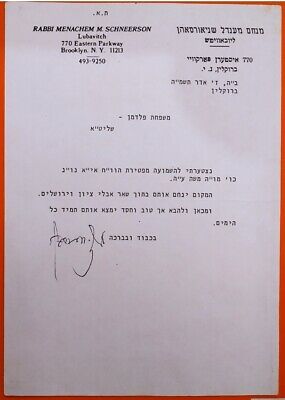 ח.א.
RABBI MENACHEM M. SCHNEERSON
Lubavitch
770 Eastern Parkway
Brooklyn, N. Y. 11213
493-9250
מנחם מענדל שניאורסאהן
ליובאוויטש
770 איסטערן פארקוויי
ברוקלין, נ. י.
ב"ה, ז' אדר תשמ"ה
ברוקלין
משפחת פלדמן -
שליט"א
נצטערתי להשמועה מפטירת הוו"ח אי"א נו"נ
כו' מו"ה משה ע"ה.
המקום ינחם אותם בתוך שאר אבלי ציון וירושלים.
ומכאן ולהבא אך טוב וחסד ימצא אותם תמיד כל
הימים.
בכבוד ובברכה